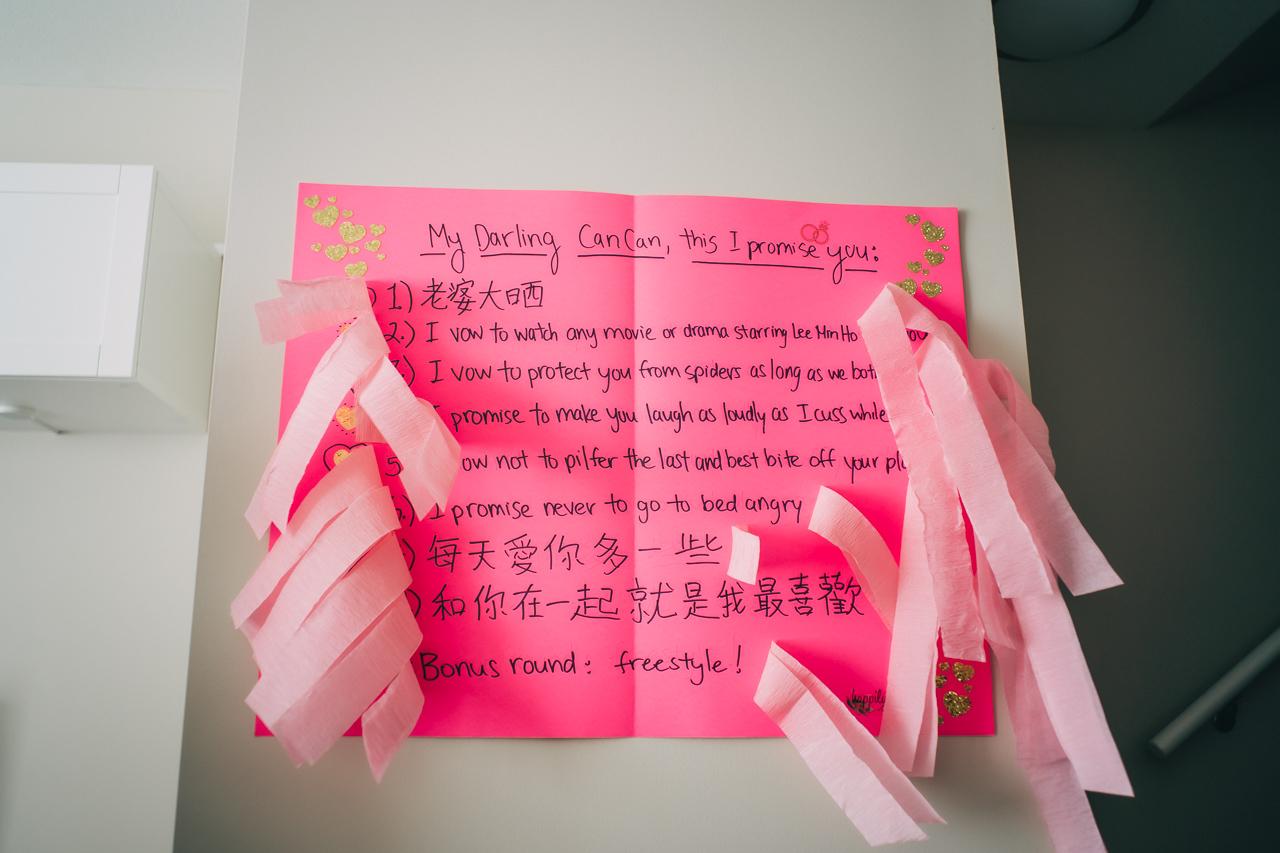 My Darling CanCan, this I promise you:
1) 老婆大晒
2.) I vow to watch any movie or drama starring Lee Min Ho
.) I vow to protect you from spiders as long as we both
I promise to make you laugh as loudly as I cuss while
5 vow not to pilfer the last and best bite off your
.) I promise never to go to bed angry
) 每天愛你多一些
) 和你在一起就是我最喜歡
Bonus round: freestyle!
happily